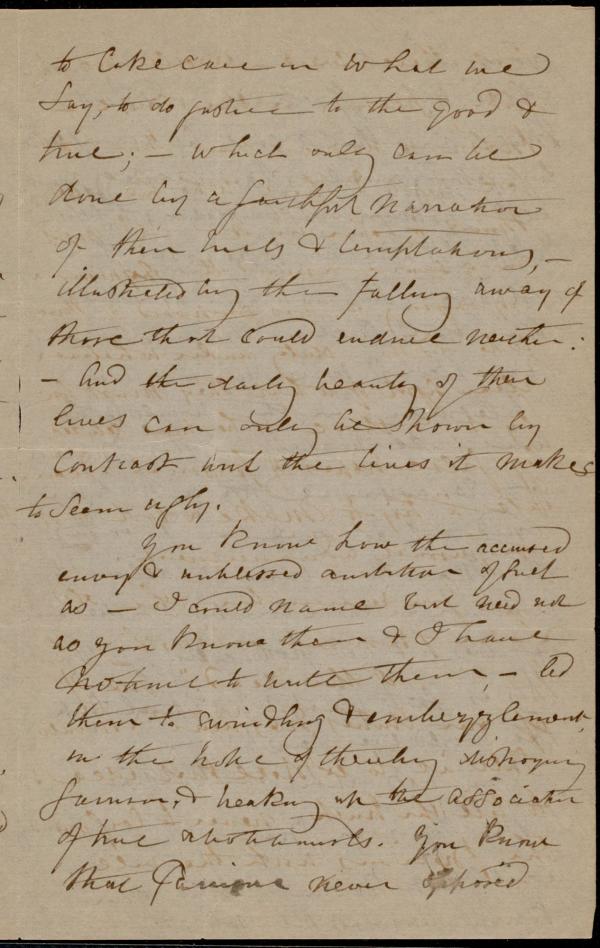 to take care in what we
say, to do justice to the good &
true; — which only can be
done by a faithful narration
of their trials & temptations, —
illustrated by the falling away of
those that could endure neither:
— And the daily beauty of their
lives can only be shown by
contrast with the lives it makes
to seem ugly.
You know how the accursed
envy & unblessed ambition of such
as — I could name but need not
as you know them & I have
no time to write them, — led
them to swindling & embezzlement,
in the hope of thereby destroying
Garrison, & breaking up the association
of true abolitionists. You know
that Garrison never opposed